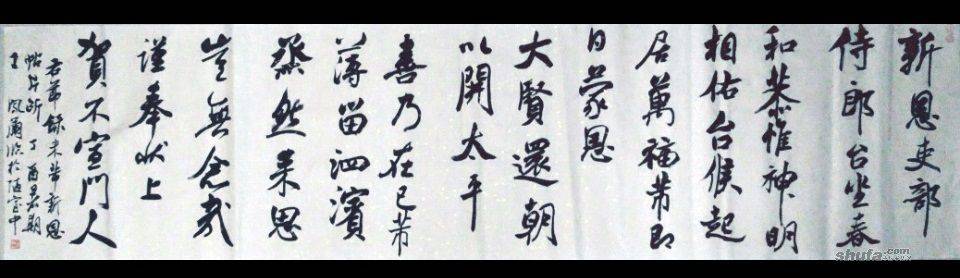 新恩吏部
侍郎台坐春
和恭惟神明
相佑台候起
居萬福芾即
日蒙恩
大賢還朝
以開太平
喜乃在己芾
薄留泗濱
烝然来思
豈無念哉
謹奉状上
賀不宣門人
右節録米芾新恩
帖 丁酉暑期
於陋室中
shufa.com